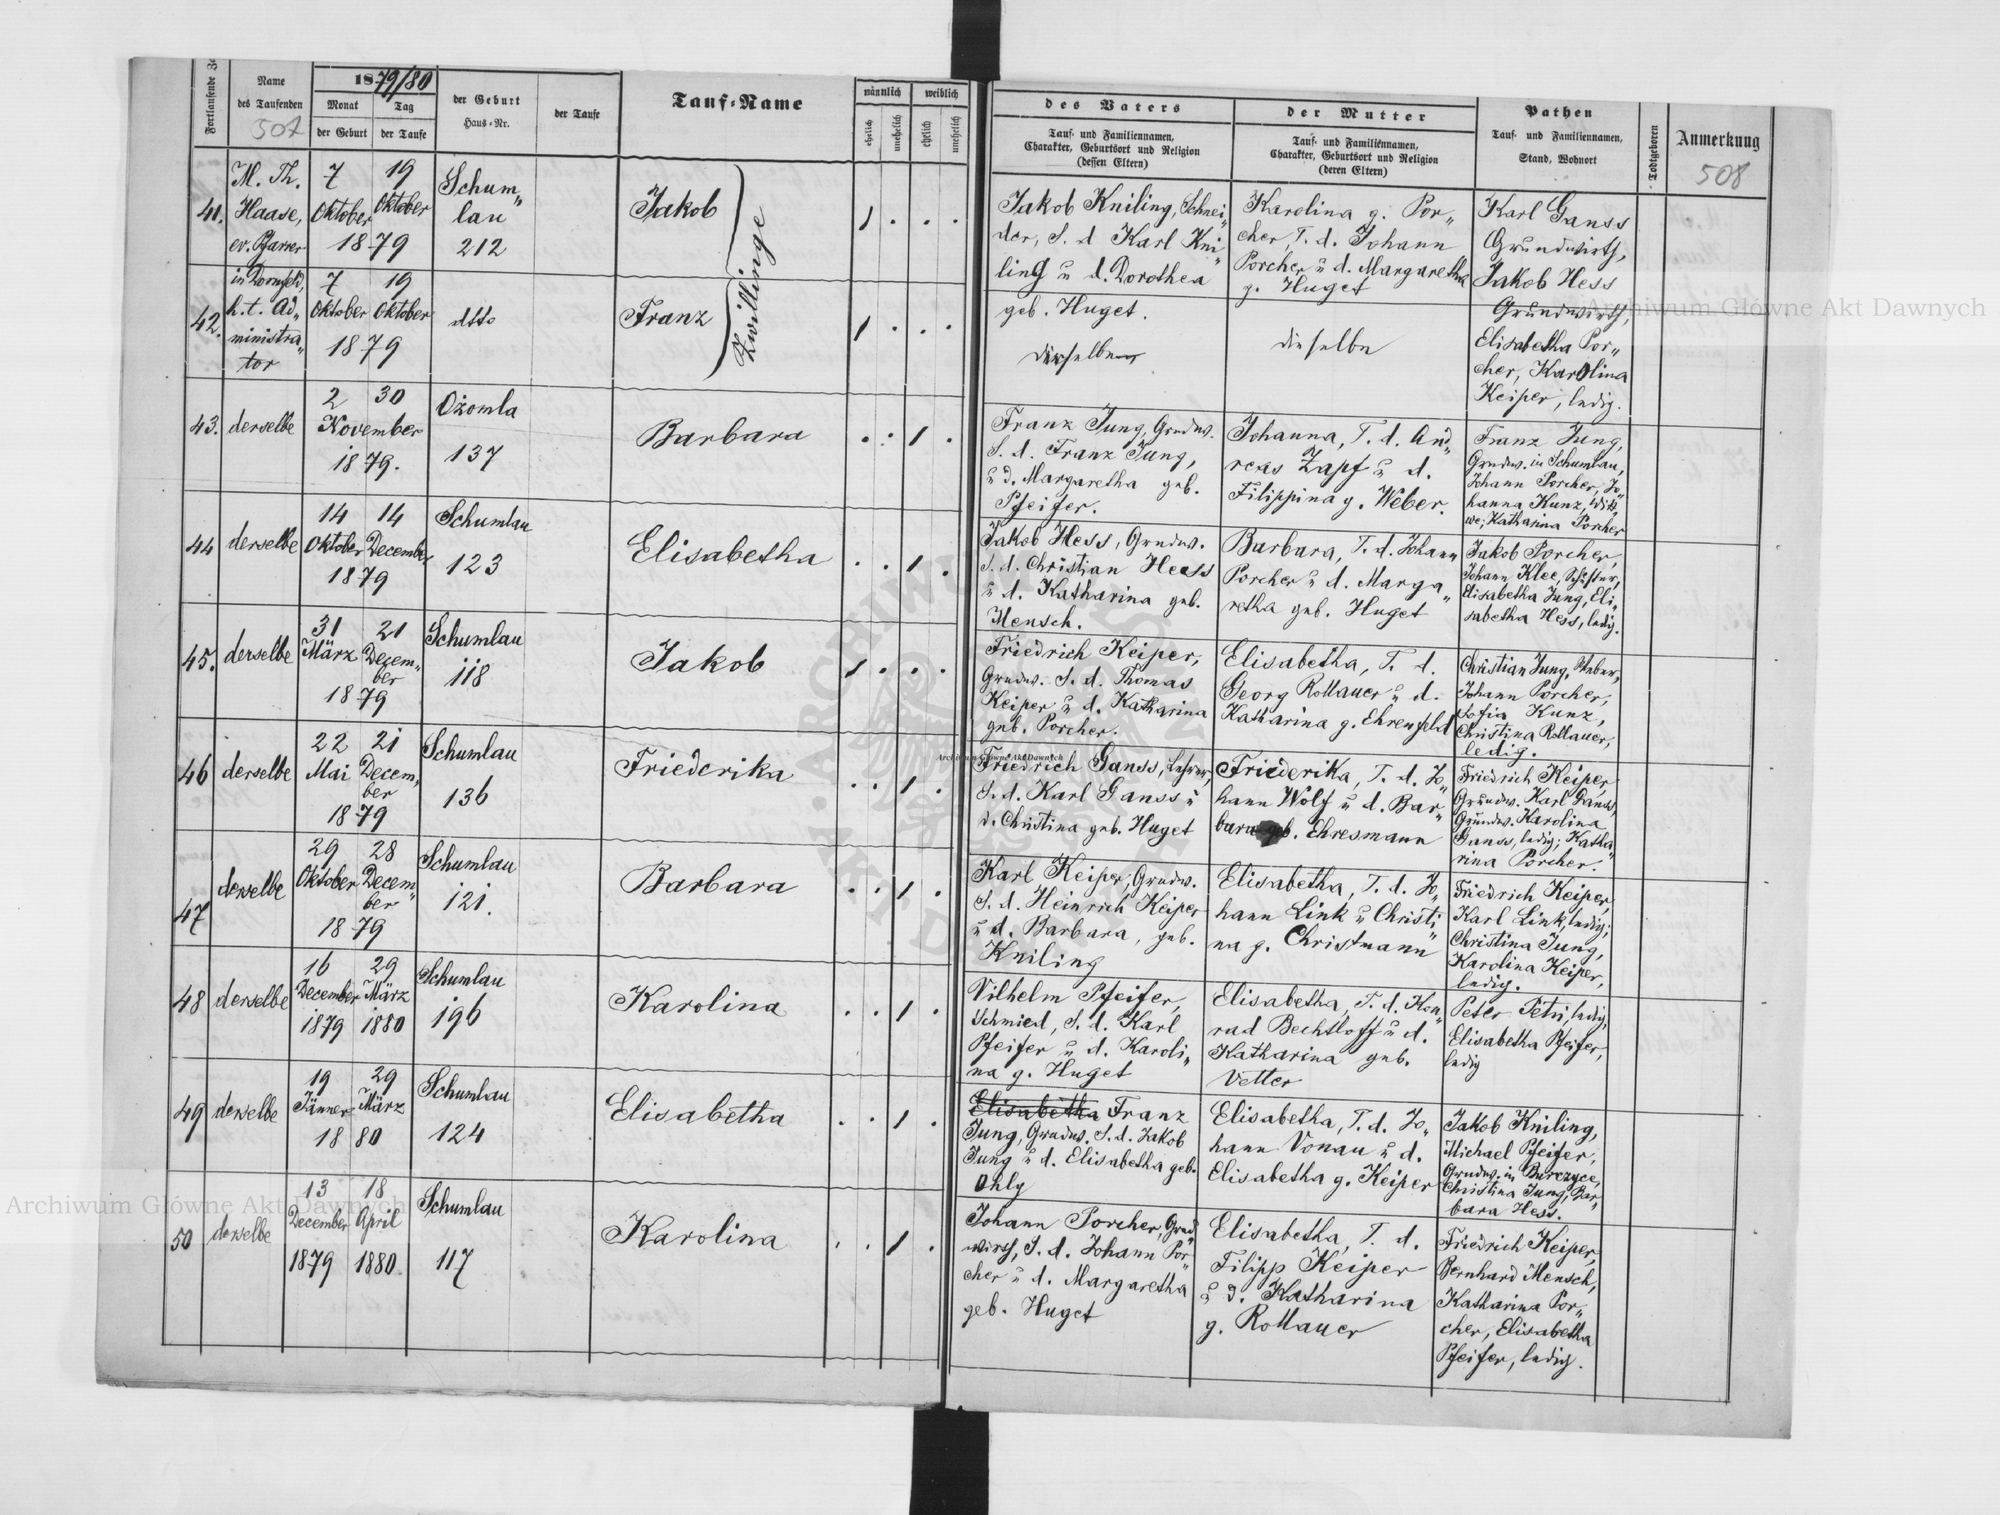 Fortlaufende
Name
des Taufenden
507
1879/80
Monat
Tag
der Geburt
der Taufe
der Geburt
Haus-Nr.
der Taufe
Tauf-Name
männlich
weiblich
ehelich
unehelich
ehelich
unehelich
des Vaters
Tauf- und Familiennamen,
Charakter, Geburtsort und Religion
(dessen Eltern)
der Mutter
Tauf- und Familiennamen,
Charakter, Geburtsort und Religion
(deren Eltern)
Pathen
Tauf- und Familiennamen,
Stand, Wohnort
Todtgeboren
Anmerkung
508
41.
M. Th.
Haase,
ev. Pfarrer
7 19
Oktober Oktober
1879
Schum„
lau
212
Jakob
Zwillinge
Jakob Kniling, Schnei„
der, S. d Karl Kni„
ling u d. Dorothea
geb. Huget.
Karolina g. Por„
cher, T. d. Johann
Porcher u d. Margaretha
g. Huget
Karl Ganss
Grundwirth,
Jakob Hess
Grundwirth,
Elisabetha Por„
cher, Karolina
Keiper, ledig.
42.
in Dornfeld,
h. t. Ad„
ministra„
tor
7 19
Oktober Oktober
1879
dtto
Franz
dieselbe
43.
derselbe
2 30
November
1879.
Ożomla
137
Barbara
Franz Jung, Grndw.
S. d. Franz Jung,
u d. Margaretha geb.
Pfeifer.
Johanna, T. d. And„
reas Zapf u d.
Filippina g. Weber.
Franz Jung,
Grndw. in Schumlau,
Johann Porcher, Jo„
hanna Kunz, Witt„
we, Katharina Porcher
44
derselbe
14 14
Oktober December
1879
Schumlau
123
Elisabetha
Jakob Hess, Grndw.
S. d. Christian Hess
u d. Katharina geb.
Mensch.
Barbara, T. d. Johann
Porcher u d. Marga„
retha geb. Huget
Jakob Porcher,
Johann Klee,
Elisabetha Jung, Eli„
sabetha Hess, ledig.
45.
derselbe
31 21
März Decem„
ber
1879
Schumlau
118
Jakob
Friedrich Keiper,
Grndw. S. d. Thomas
Keiper u d. Katharina
geb. Porcher.
Elisabetha, T. d.
Georg Rollauer u d.
Katharina g. Ehrenfeld
Christian Jung,
Johann Porcher,
Sofia Kunz,
Christina Rollauer,
ledig.
46
derselbe
22 21
Mai Decem„
ber
1879
Schumlau
136
Friederika
Friedrich Ganss, Lehrer,
S. d. Karl Ganss u
d. Christina geb. Huget
Friederika, T. d. Jo„
hann Wolf u d. Bar„
bara geb. Ehresmann
Friedrich Keiper,
Grundw. Karl Ganss,
Grundw. Karolina
Ganss, ledig; Katha„
rina Porcher.
47
derselbe
29 28
Oktober Decem„
ber
1879
Schumlau
121.
Barbara
Karl Keiper, Grndw.
S. d. Heinrich Keiper
u d. Barbara, geb.
Kniling
Elisabetha, T. d. Jo„
hann Link u Christi„
na g. Christmann
Friedrich Keiper,
Karl Link, ledig;
Christina Jung,
Karolina Keiper,
ledig.
48
derselbe
16 29
December März
1879 1880
Schumlau
196
Karolina
Vilhelm Pfeifer,
Schmied, S. d. Karl
Pfeifer u d. Karoli„
na g. Huget
Elisabetha, T. d. Kon„
rad Bechtloff u d.
Katharina geb.
Vetter
Peter Petri, ledig,
Elisabetha Pfeifer,
ledig
49
derselbe
19 29
Jänner März
1880
Schumlau
124
Elisabetha
Elisabetha Franz
Jung, Grndw. S. d. Jakob
Jung u d. Elisabetha geb.
Ohly
Elisabetha, T. d. Jo„
hann Vonau u d.
Elisabetha g. Keiper
Jakob Kniling,
Michael Pfeifer,
Grndw. in Burczyce,
Christina Jung, Bar„
bara Hess.
50
derselbe
13 18
December April
1879 1880.
Schumlau
117
Karolina
Johann Porcher, Grnd„
wirth, S. d. Johann Por„
cher u d. Margaretha
geb. Huget
Elisabetha, T. d.
Filipp Keiper
u d. Katharina
g. Rollauer
Friedrich Keiper,
Bernhard Mensch,
Katharina Por„
cher, Elisabetha
Pfeifer, ledig.
Archiwum Główne Akt Dawnych
Archiwum Główne Akt Dawnych
Archiwum Główne Akt Dawnych